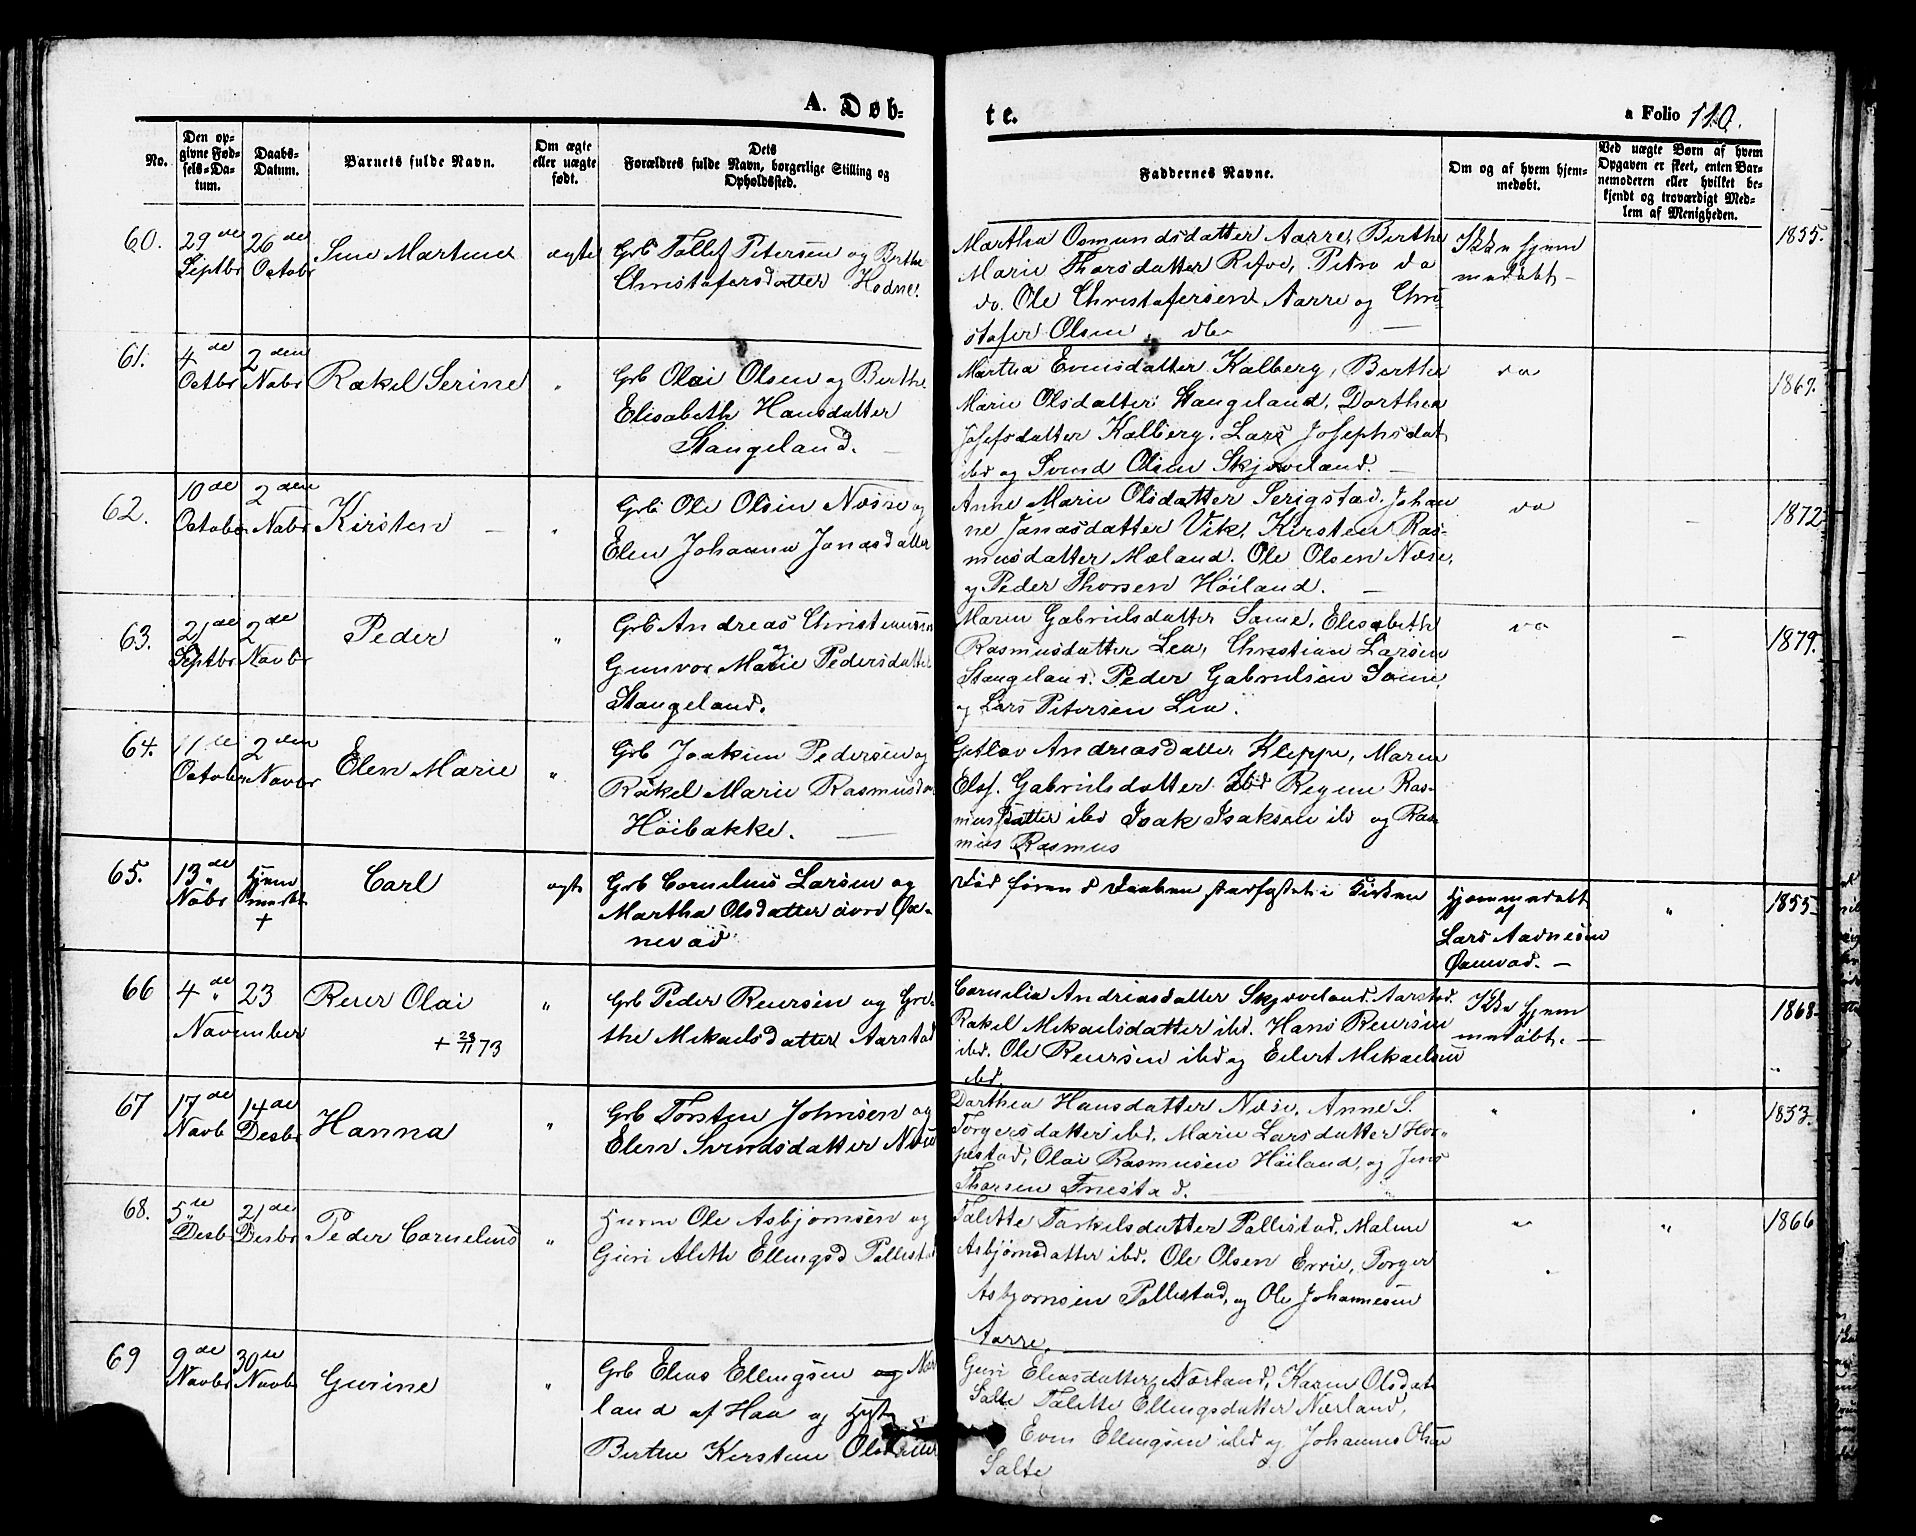 A. Døb-
te.
a Folio 110.
No.
Den op-
givne Fød-
sels-Da-
tum.
Daabs-
Datum.
Barnets fulde Navn.
Om ægte
eller uægte
født.
Dets
Forældres fulde Navn, borgerlige Stilling og
Opholdssted.
Faddernes Navne.
Om og af hvem hjem-
medøbt.
Ved uægte Børn af hvem
Opgaven er skeet, enten Bar-
nemoderen eller hvilket be-
kjendt og troværdigt Med-
lem af Menigheden.
60.
29 de
Septbr
26 de
Octobr
Sine Martine
ægte
Grb Tollef Petersen og Berthe
Christofersdatter Hodne.
Martha Osmundsdatter Aarre, Berthe
Marie Thorsdatter Reve, Petro do
do. Ole Christofersen Aarre og Chri-
stofer Olsen
Ikke hjem
medøbt -
1855.
61.
4 de
Octbr
2 den
Nobr
Rakel Serine
"
Grb Olai Olsen og Berthe
Elisabeth Hansdatter
Stangeland.
Martha Evensdatter Kalberg, Berthe
Marie Olsdatter Stangeland, Dorthea
Josefsdatter Kalberg. Lars Josephsdat
ibd og Svend Olsen Skjæveland.
do
1867.
62.
10 de
Octobr
2 den
Nobr
Kirsten
"
Grb Ole Olsen Næsse og
Elen Johanna Jonasdatter
Anne Marie Olsdatter Serigstad. Johan
ne Jonasdatter Vik, Kirsten Ras-
musdatter Mæland. Ole Olsen Næse,
og Peder Thorsen Höiland.
do
1872
63.
21 de
Septbr
2 de
Novbr
Peder
"
Grb Andreas Christensen
og
Gunvor Marie Pedersdatter
Stangeland.
Maren Gabrielsdatter Some, Elisabeth
Rasmusdatter Lea, Christian Larsen
Stangeland. Peder Gabrielsen Some
og Lars Petersen Lea.
do
1879.
64.
11 te
Octobr
2 den
Novbr
Elen Marie
"
Grb Joakim Pedersen og
Rakel Marie Rasmusda
Höibakke.
Getlov Andreasdatter Kleppe, Maren
Els. Gabrielsdatter Ibid Regine Ras-
musdatter ibd Isak Isaksen ibd og Ras
mus Rasmus
65.
13 de
Nobr
Hjem
+
Carl
ægte
Grb Cornelius Larsen og
Martha Olsdatter övre Øx-
nevad
Död foren d Daaben stadfestet i Kirken
Hjemmedøbt
af
Lars Aadnesen
Øxnevad. -
"
1855.
66
4 de
23
November
Reier Olai
+ 28/11 73
"
Grb Peder Reiersen og Gre-
the Mikaelsdatter Aarstad
Cornelia Andreasdatter Skjæveland. Aarstad.
Rakel Mikaelsdatter ibd. Hans Reiersen
ibd. Ole Reiersen ibd og Eilert Mikaelsen
ibd.
Ikke hjem
medøbt. -
1868
67
17 de
Novb
14 de
Desbr
Hanna
"
Grb Torsten Johnsen og
Elen Svendsdatter Næse
Dorthea Hansdatter Næse, Anne S.
Torgersdatter ibd. Marie Larsdatter Hor-
pestad, Olai Rasmusen Höiland, og Jens
Thorsen Fuestad.
"
1853.
68.
5 te
Desbr
21 de
Desbr
Peder Cornelius
"
Ole Asbjornsen og
Guri Alette Ellingsd Pollestad
Talette Torkelsdatter Pollestad. Malene
Asbjørnsdatter ibd. Ole Olsen Errie, Torger
Asbjornsen Pollestad, og Ole Johannesen
Aarre.
"
"
1866
69
9 de
Novbr
30 te
Novbr
Gurine
"
Grb Elias Ellingsen og Nær
land af Haa og Hust
Berthe Kirstine Olsdatter
Guri Eliasdatter Nærland, Karen Olsdat
Salte Talette Ellingsdatter Nærland,
Even Ellingsen ibd og Johannes Olsen
Salte